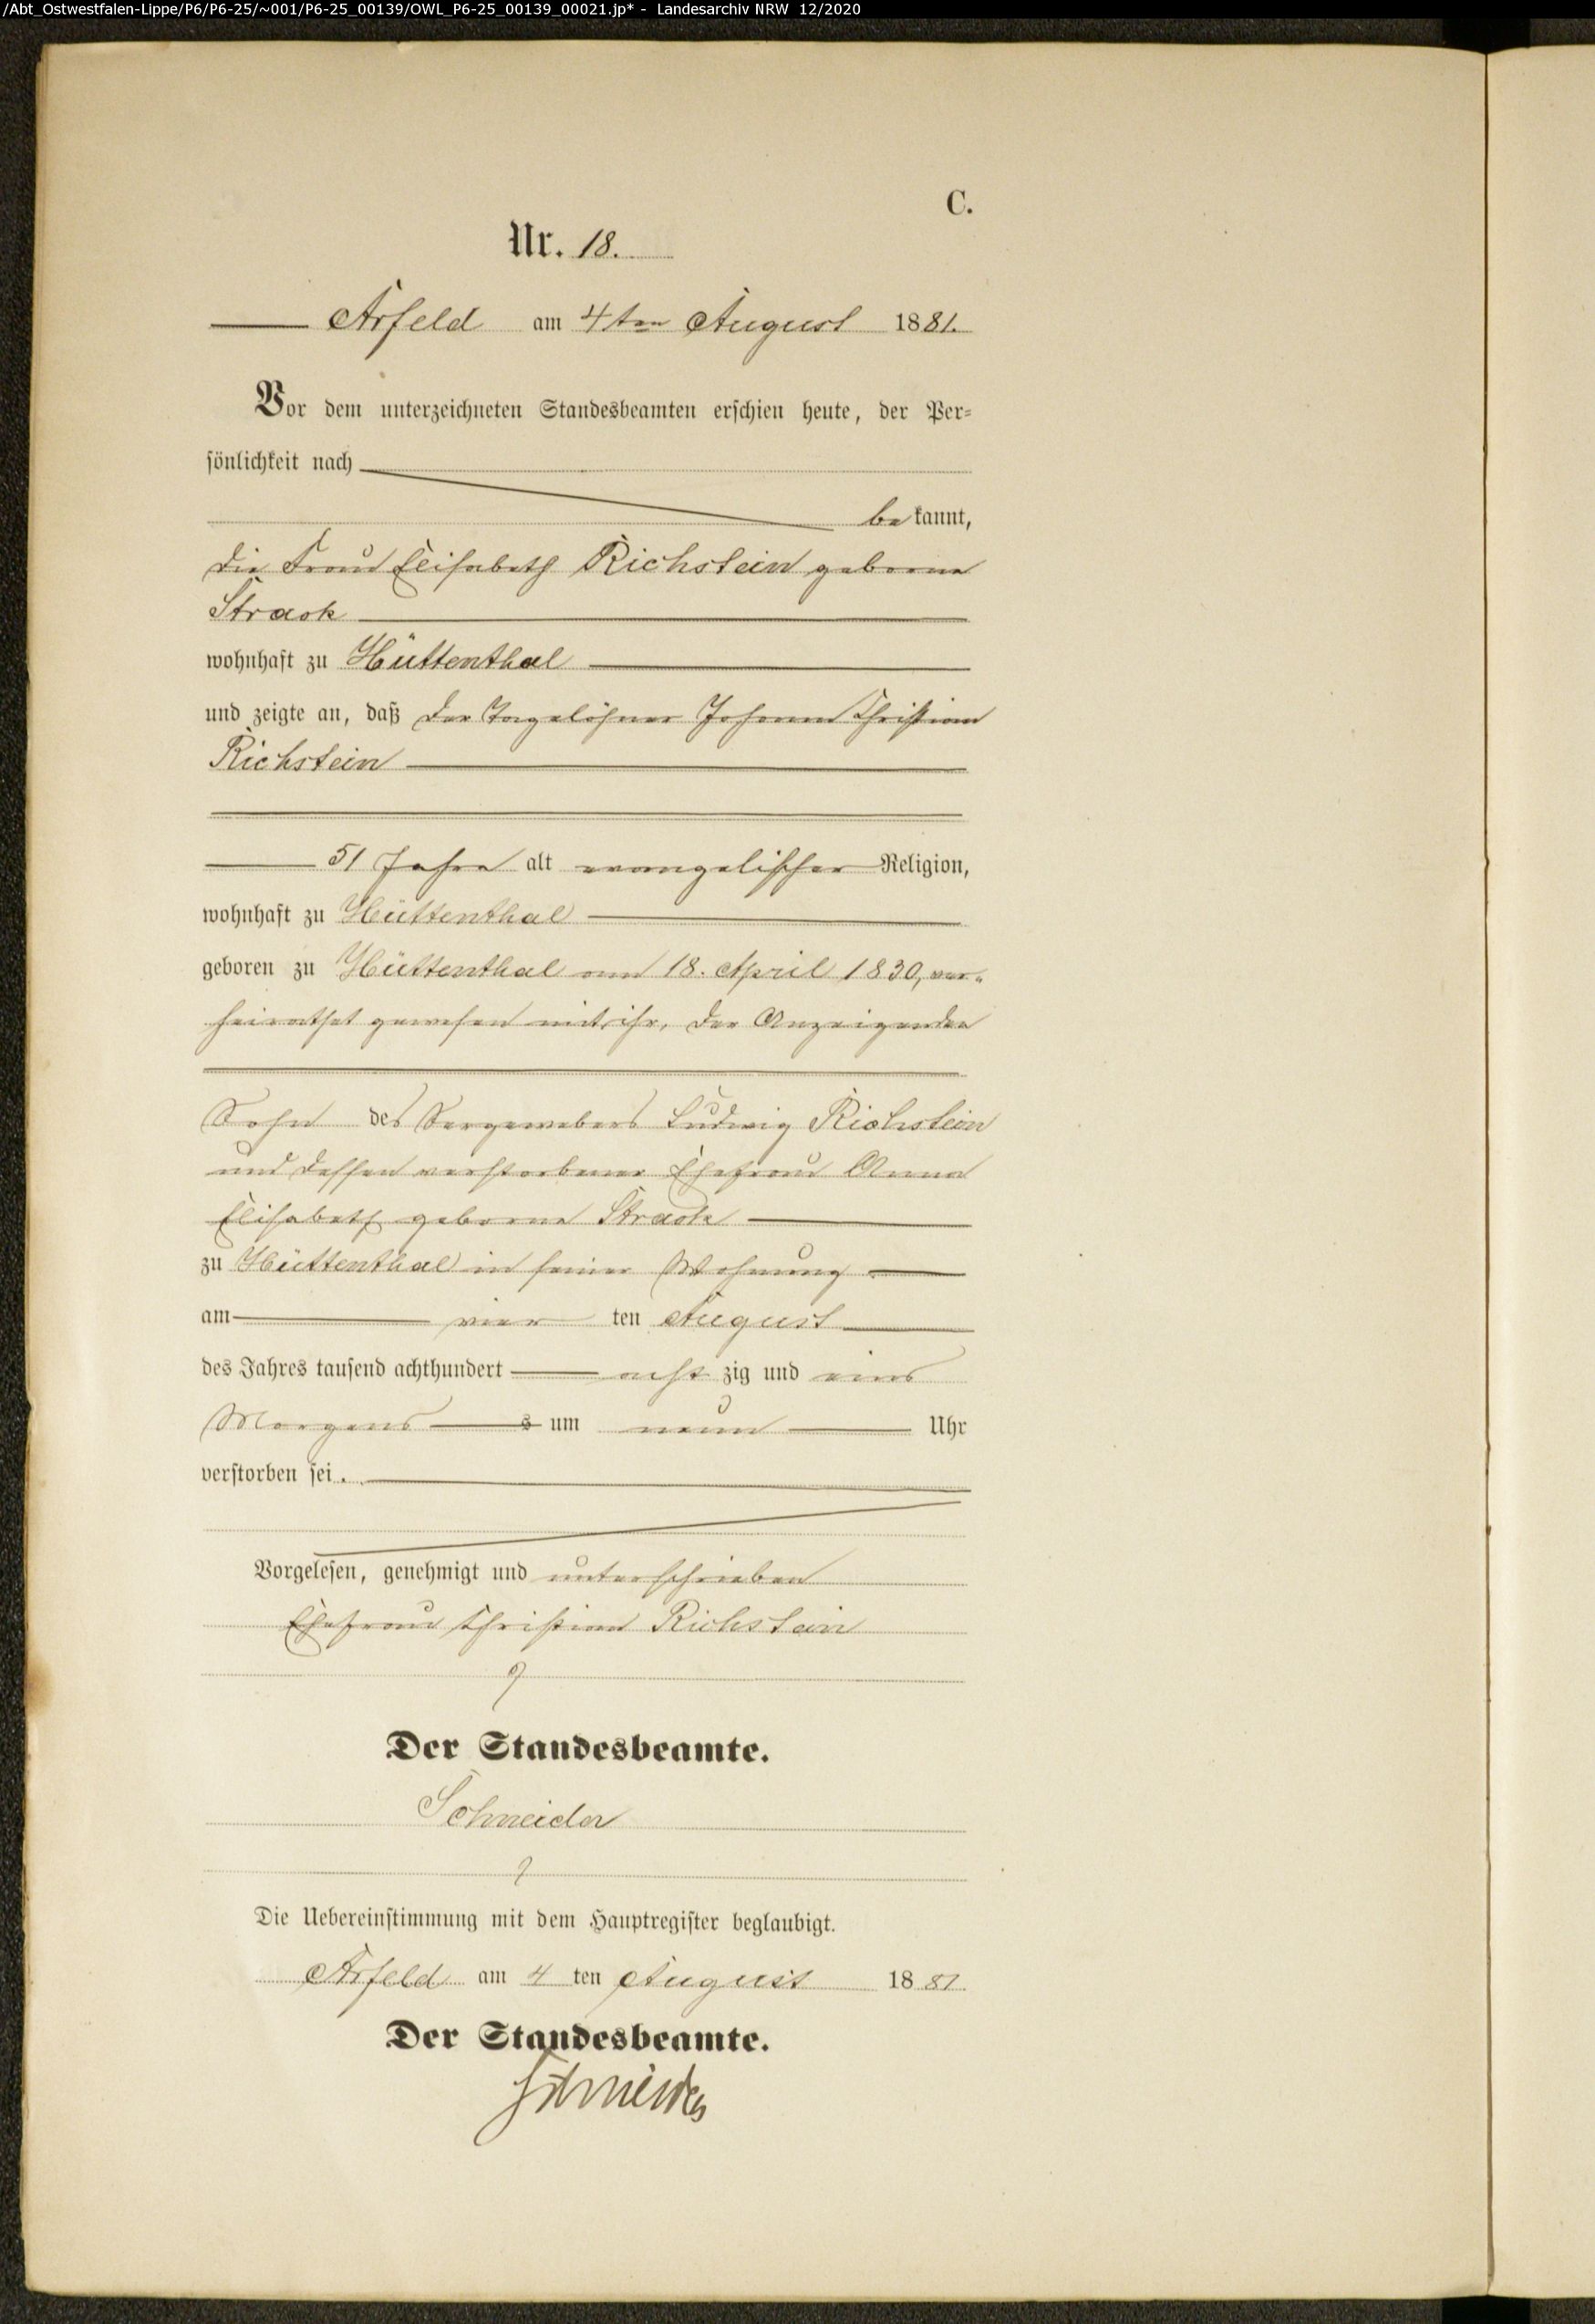 /Abt_Ostwestfalen-Lippe/P6/P6-25/~001/P6-25_00139/OWL_P6-25_00139_00021.jp* - Landesarchiv NRW 12/2020
C.
Nr. 18.
Arfeld am 4ten August 1881.
Vor dem unterzeichneten Standesbeamten erschien heute, der Per-
sönlichkeit nach
bekannt,
die Frau Elisabeth Richstein geborne
Strack
wohnhaft zu Hüttenthal
und zeigte an, daß der Tagelöhner Johann Christian
Richstein
51 Jahre alt evangelischer Religion,
wohnhaft zu Hüttenthal
geboren zu Hüttenthal am 18. April 1830, ver-
heirathet gewesen mit ihr, der Anzeigenden
Sohn des Sergewebers Ludwig Richstein
und dessen verstorbener Ehefrau Anna
Elisabeth geborne Strack
zu Hüttenthal in seiner Wohnung
am vier ten August
des Jahres tausend achthundert acht zig und eins
Morgens s um neun Uhr
verstorben sei.
Vorgelesen, genehmigt und unterschrieben
Ehefrau Christian Richstein
Der Standesbeamte.
Schneider
Die Uebereinstimmung mit dem Hauptregister beglaubigt.
Arfeld am 4 ten August 1881.
Der Standesbeamte.
Schneider